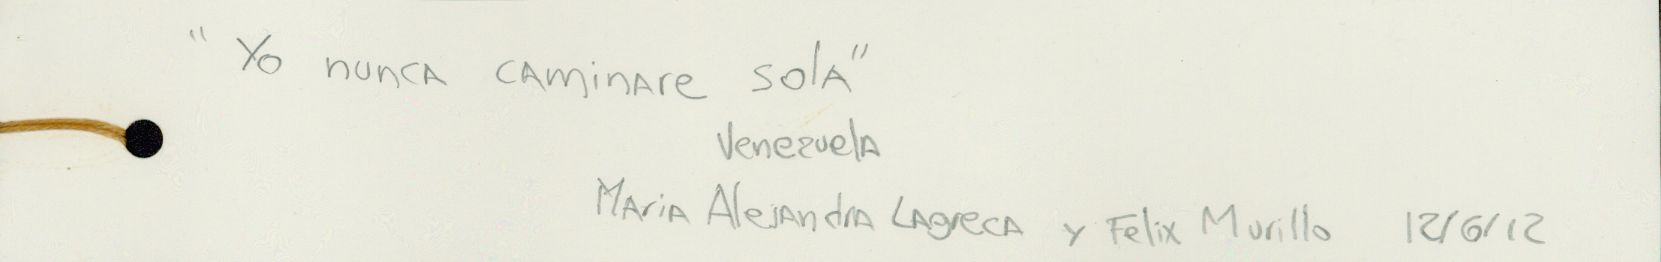 "Yo nunca caminare sola"
Venezuela
Maria Alejandra Lagreca y Felix Murillo 12/6/12